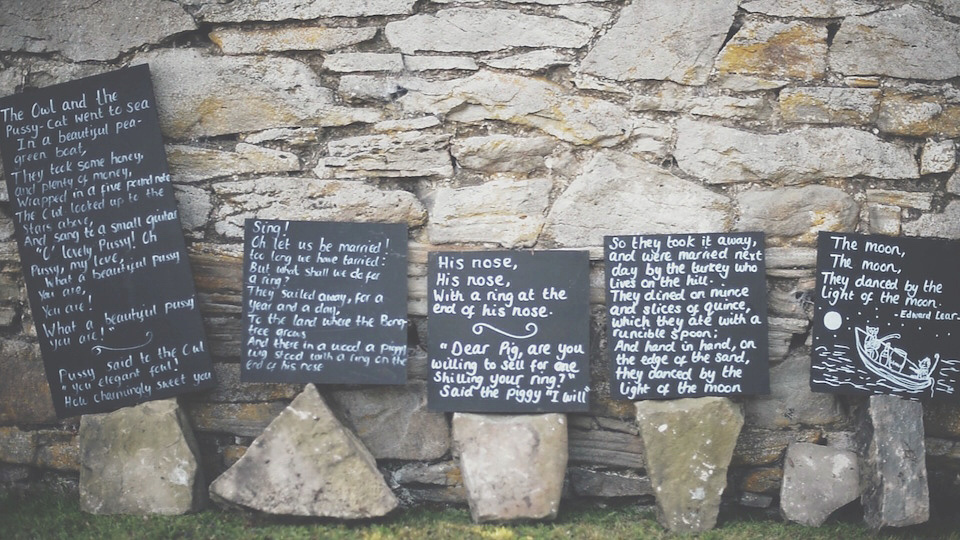 The Owl and the
Pussy-Cat went to sea
In a beautiful pea-
green boat,
They took some honey,
and plenty of money,
Wrapped in a five pound note
The Owl looked up to the
Stars above,
And sang to a small guitar
"O' lovely Pussy! Oh
Pussy, my love,
What a beautiful pussy
You are,
You are!
What a beautiful pussy
You are!"
Pussy said to the Owl
"You elegant fowl!
How charmingly sweet you
Sing!
Oh let us be married!
too long we have tarried:
But what shall we do for
a ring?
They sailed away, for a
year and a day,
To the land where the Bong-
tree grows
And there in a wood a piggy
wig stood with a ring on the
end of his nose
His nose,
His nose,
With a ring at the
end of his nose.
"Dear Pig, are you
willing to sell for one
Shilling your ring?"
Said the Piggy "I will
So they took it away,
and were married next
day by the turkey who
lives on the hill.
They dined on mince
and slices of quince,
which they ate with a
runcible spoon;
And hand in hand, on
the edge of the sand,
they danced by the
light of the moon
The moon,
The moon,
They danced by the
light of the moon.
-Edward Lear.